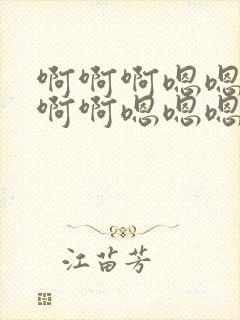 啊啊啊嗯嗯
啊啊嗯嗯嗯
江苗芳